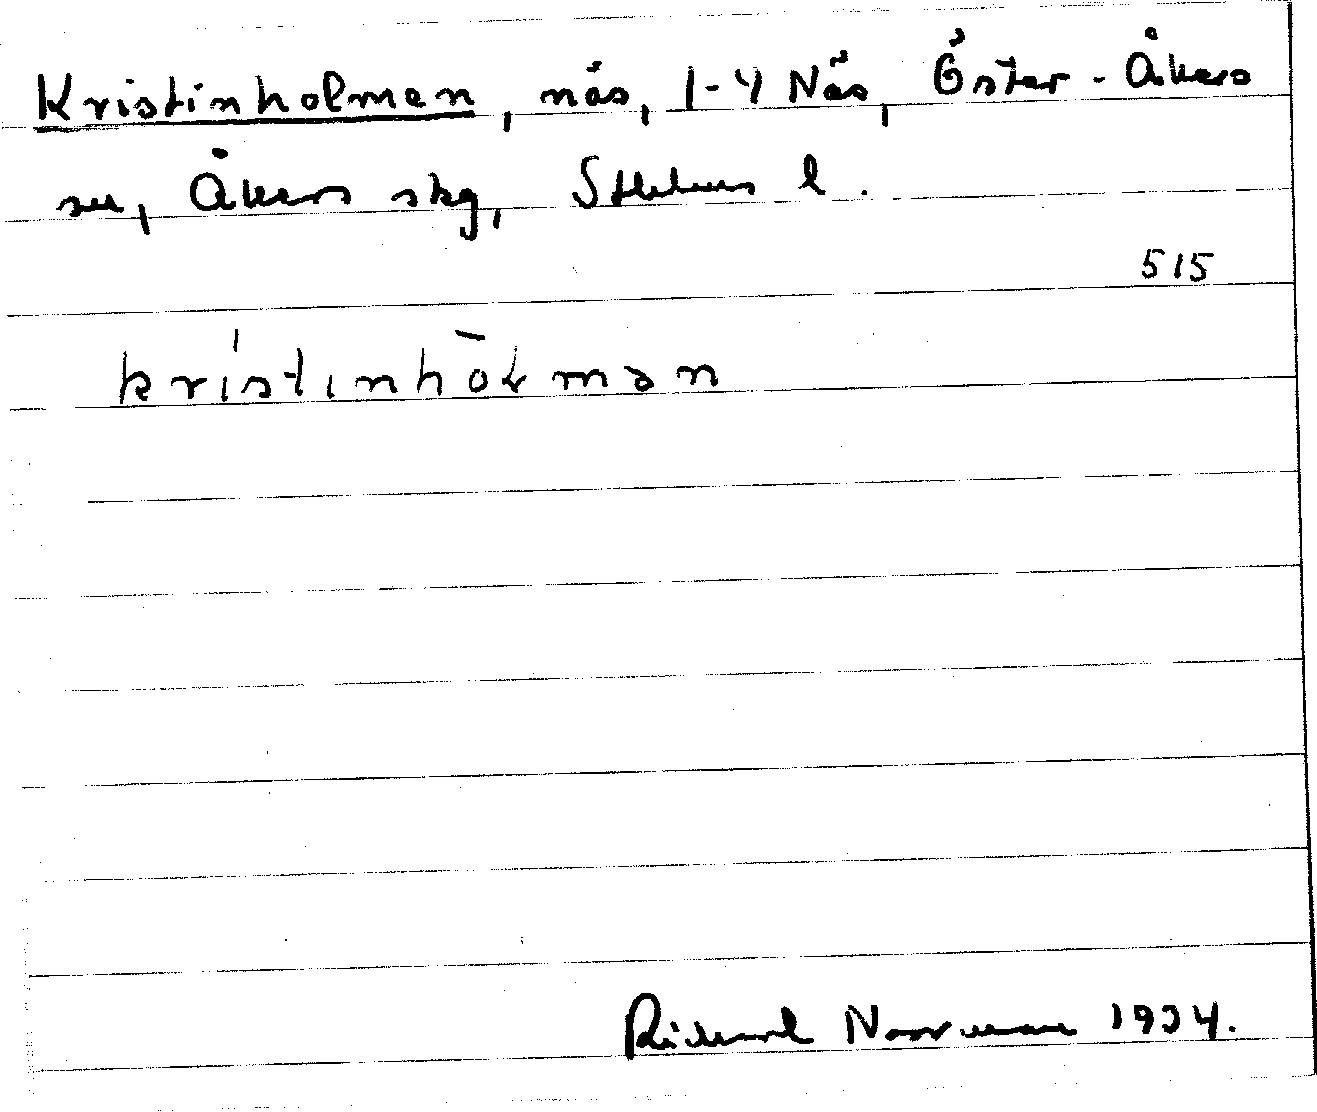 Kristinholmen, näs, 1-4 Näs, Öster-Åkers
sn, Åkers skg, Sthlms l.
515
kristinhō̵łmən
Rickard Norrman 1934.